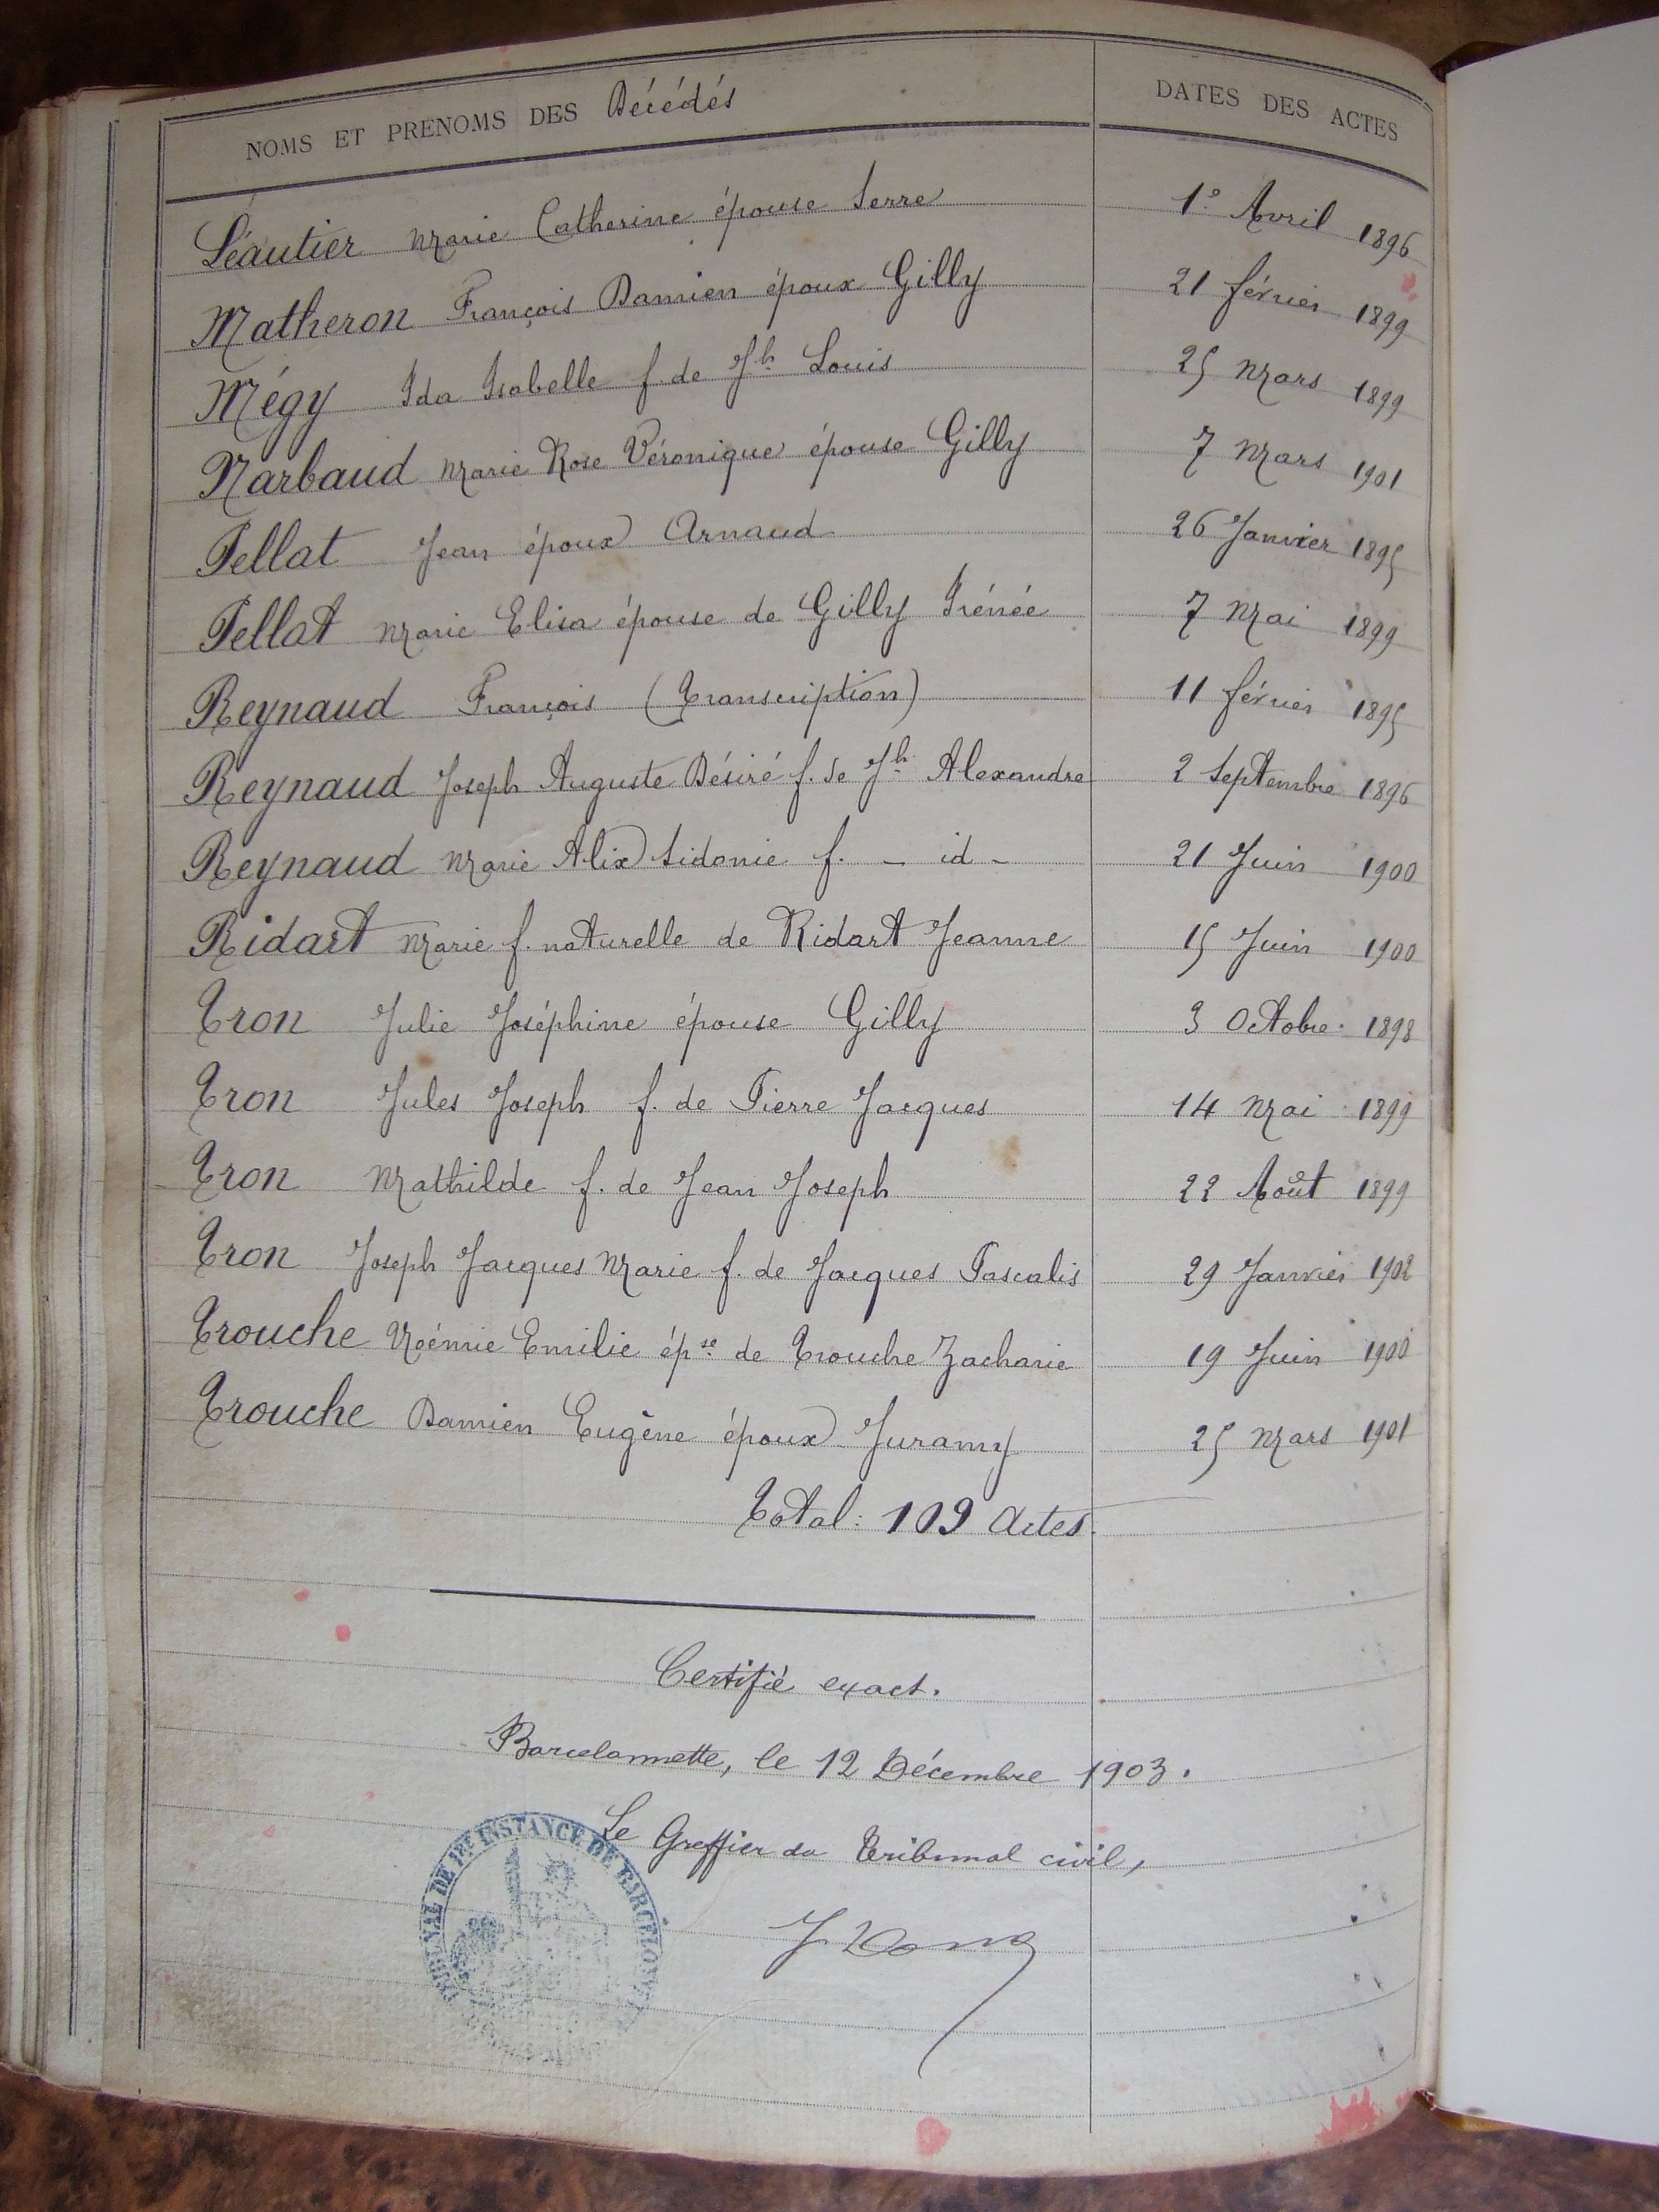 NOMS ET PRENOMS DES Décédés DATES DES ACTES
Léautier Marie Catherine épouse Serre 1º Avril 1896
Matheron François Damien époux Gilly 21 février 1899
Mégy Ida Isabelle f. de Jh Louis 25 Mars 1899
Narbaud Marie Rose Véronique épouse Gilly 7 Mars 1901
Pellat Jean époux Arnaud 26 Janvier 1895
Pellat Marie Elisa épouse de Gilly Irénée 7 Mai 1899
Reynaud François (Transcription) 11 février 1895
Reynaud Joseph Auguste Désiré f. de Jh Alexandre 2 Septembre 1896
Reynaud Marie Alix Sidonie f. - id - 21 Juin 1900
Ridart Marie f. naturelle de Ridart Jeanne 15 Juin 1900
Tron Julie Joséphine épouse Gilly 3 Octobre 1898
Tron Jules Joseph f. de Pierre Jacques 14 Mai 1899
Tron Mathilde f. de Jean Joseph 22 Août 1899
Tron Joseph Jacques Marie f. de Jacques Pascalis 29 Janvier 1902
Trouche Noémie Emilie épse de Trouche Zacharie 19 Juin 1900
Trouche Damien Eugène époux Juramy 25 Mars 1901
Total: 109 Actes.
Certifié exact.
Barcelonnette, le 12 Décembre 1903.
Le Greffier du Tribunal civil,
TRIBUNAL DE 1ERE INSTANCE DE BARCELONNETTE